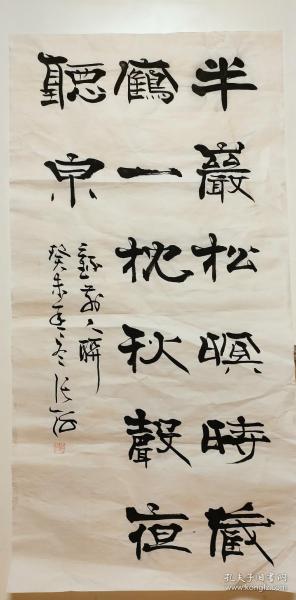 半巖松暝時藏
鶴一枕秋聲夜
聽泉
錄前人聯
癸未年冬
孔夫子旧书网
www.kongfz.com